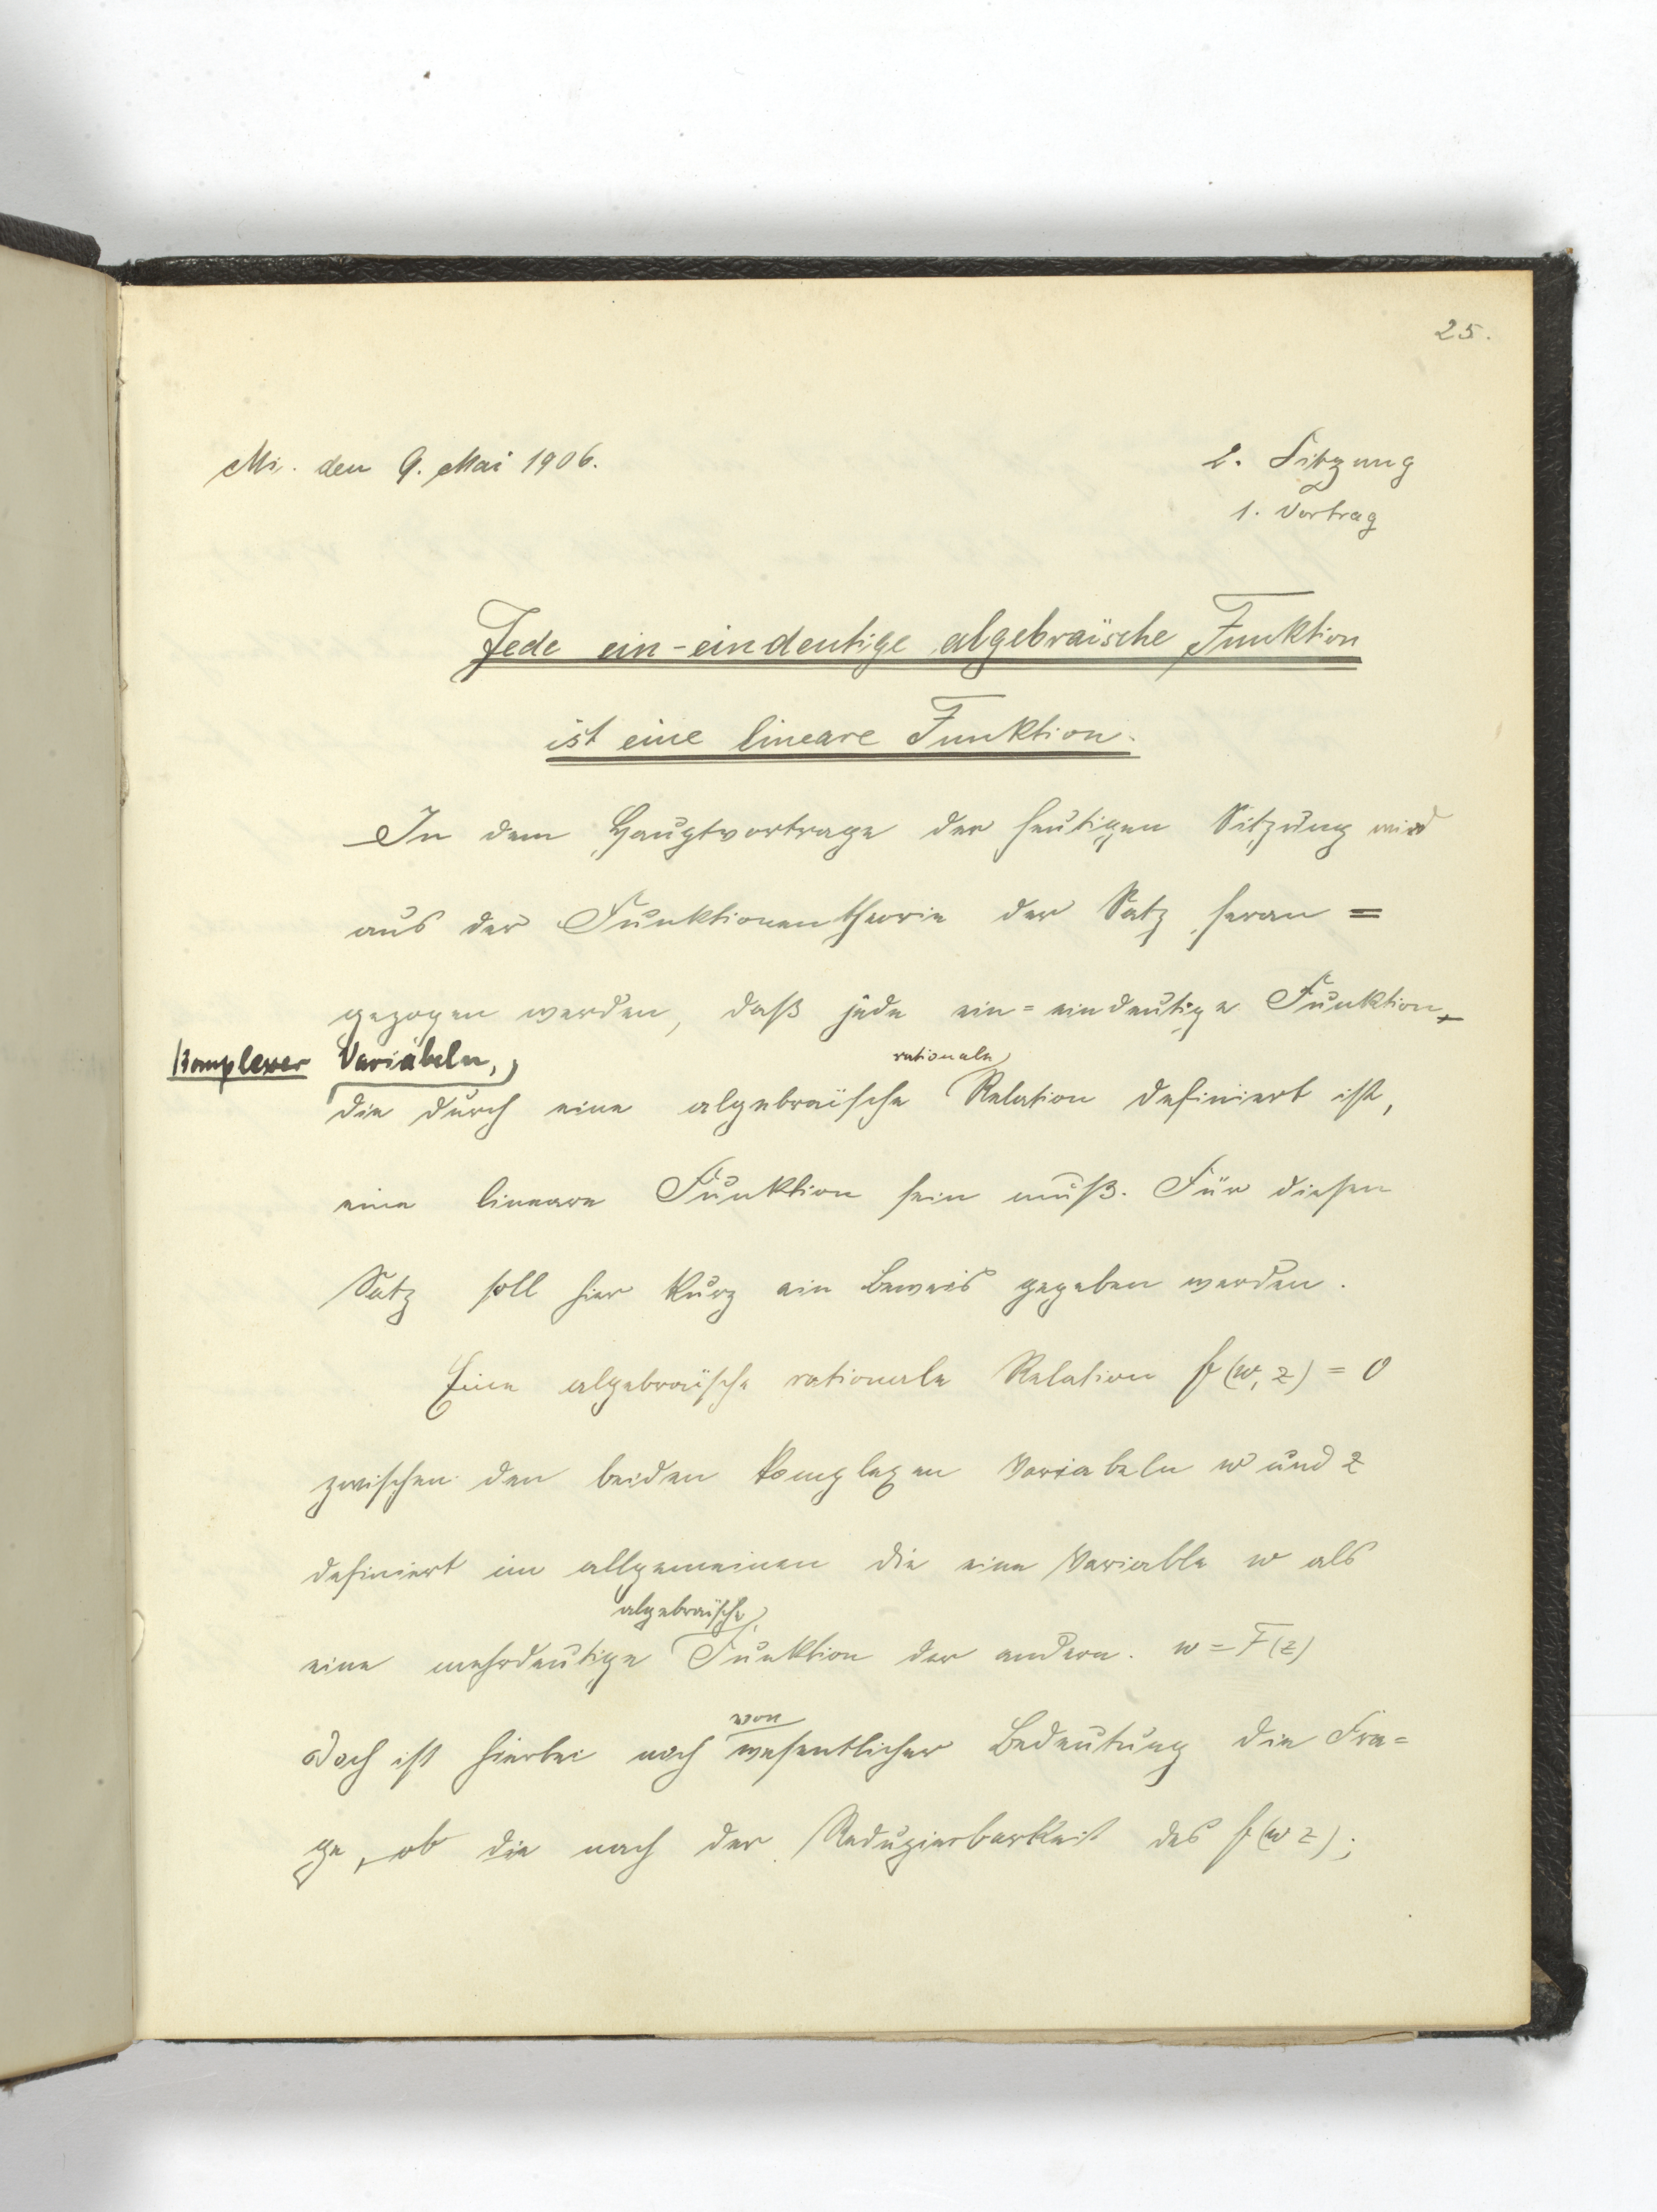 25.
Mi. den 9. Mai 1906.
2. Sitzung
1. Vortrag
Jede ein-eindeutige algebraïsche Funktion
ist eine lineare Funktion.
In dem Hauptvortrage der heutigen Sitzung wird
aus der Funktionentheorie der Satz heran =
gezogen werden, daß jede ein=eindeutige Funktion
komplexer Variabeln,
rationale
die durch eine algebraïsche Relation definiert ist,
eine lineare Funktion sein muß. Für diesen
Satz soll hier kurz ein Beweis gegeben werden.
Eine algebraïsche rationale Relation f(w, z) = 0
zwischen den beiden komplexen Variabeln w und z
definiert im allgemeinen die eine Variable w als
algebraïsche
eine mehrdeutige Funktion der andern. w = F(z)
Doch ist hierbei noch wesentlicher Bedeutung die Fra=
von
ge, ob die nach der Reduzierbarkeit des f(w z);